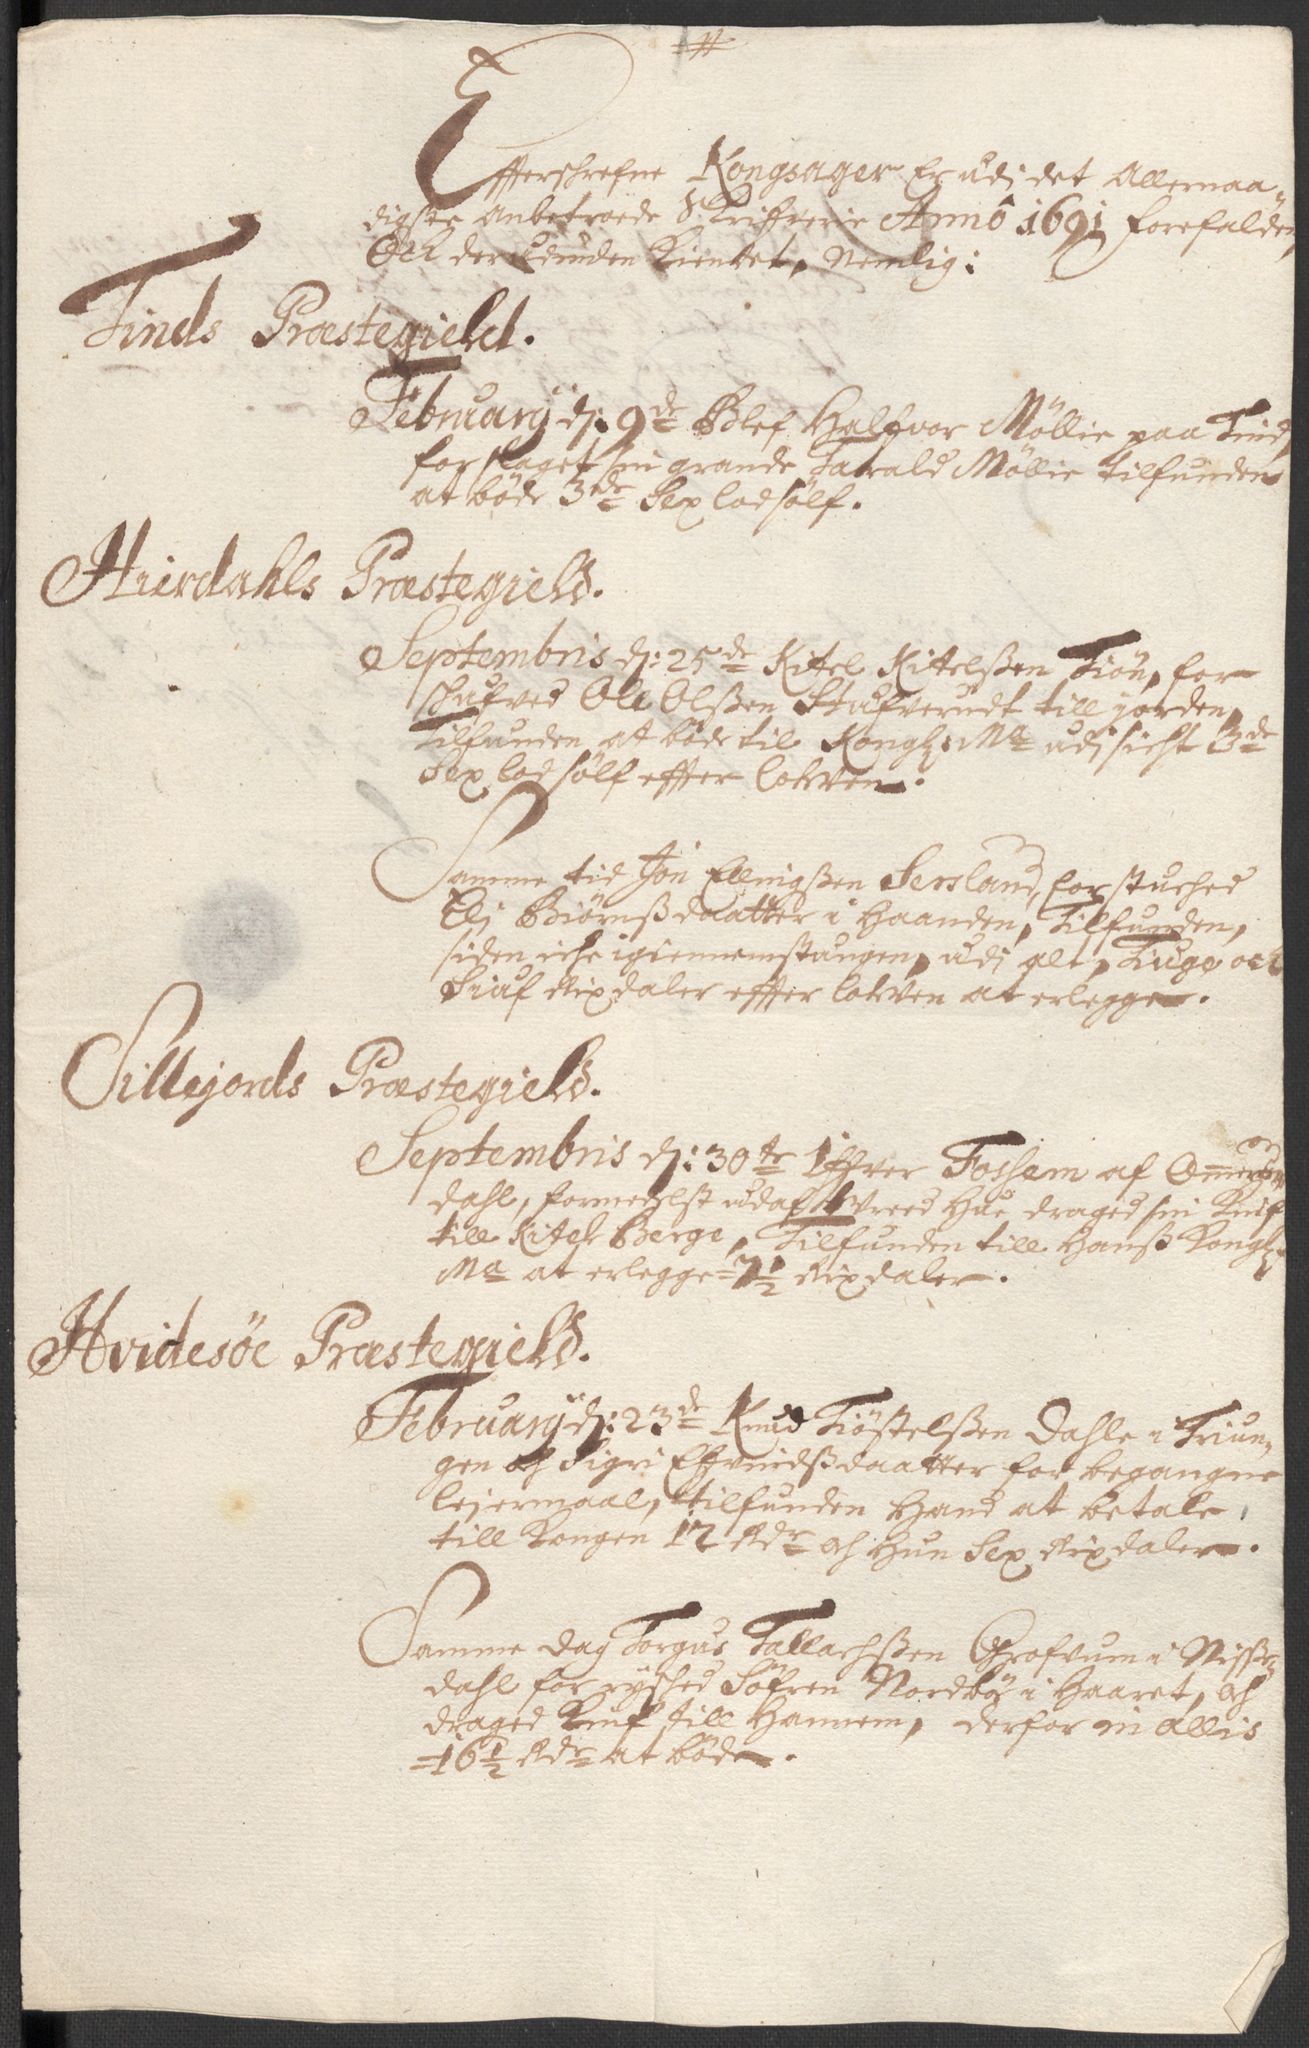 Effterschrefne Kongsager Er udj det Allernaa-
digste Anbetroede Skrifverie Annô 1691 forefalden
Och der Udinden Kiendet, Nemlig:
Tinds Præstegield.
February d: 9de Blef Halfvor Möllie paa Tind,
for slaget sin grande Tarald Möllie tilfunden
at böde 3de Sex lod sölf.
Hierdahls Præstegield.
Septembris d: 25de Kitel Kitelßen Tiön, for
skufved Ole Olßen Stufverudt till jorden,
Tilfunden at böde til Kongl: Ma udj sicht 3de
Sex lod sölf effter lowen.
Samme tid Jon Ellingßen Sersland, for stuched
Elj Biörnßdaatter i Haanden, Tilfunden,
siden iche igiennemstungen, udj alt, Tiuge och
Siuf Rixdaler effter lowen at erlegge.
Sillejords Præstegield.
Septembris d: 30te Iffver Fossem af
dahl, formedelst udaf Vreed Hue draged sin Knif
till Kitel Berge, Tilfunden till Hanß Kongl:
Ma at erlegge 7½ Rixdaler.
Hvidesöe Præstegield.
February d: 23de Knud Tiöstelßen Dahle i Triun-
gen och Sigri Effvindßdaatter for begangne
leiermaal, tilfunden Hand at betale
till Kongen 12 Rdr och Hun Sex Rixdaler.
Samme dag Torgus Tallachßen Grofvum i Nisse-
dahl for rysched Söfren Nordböe i Haaret, och
draged Knif till Hannem, derfor in allis
16½ Rdr at böde.